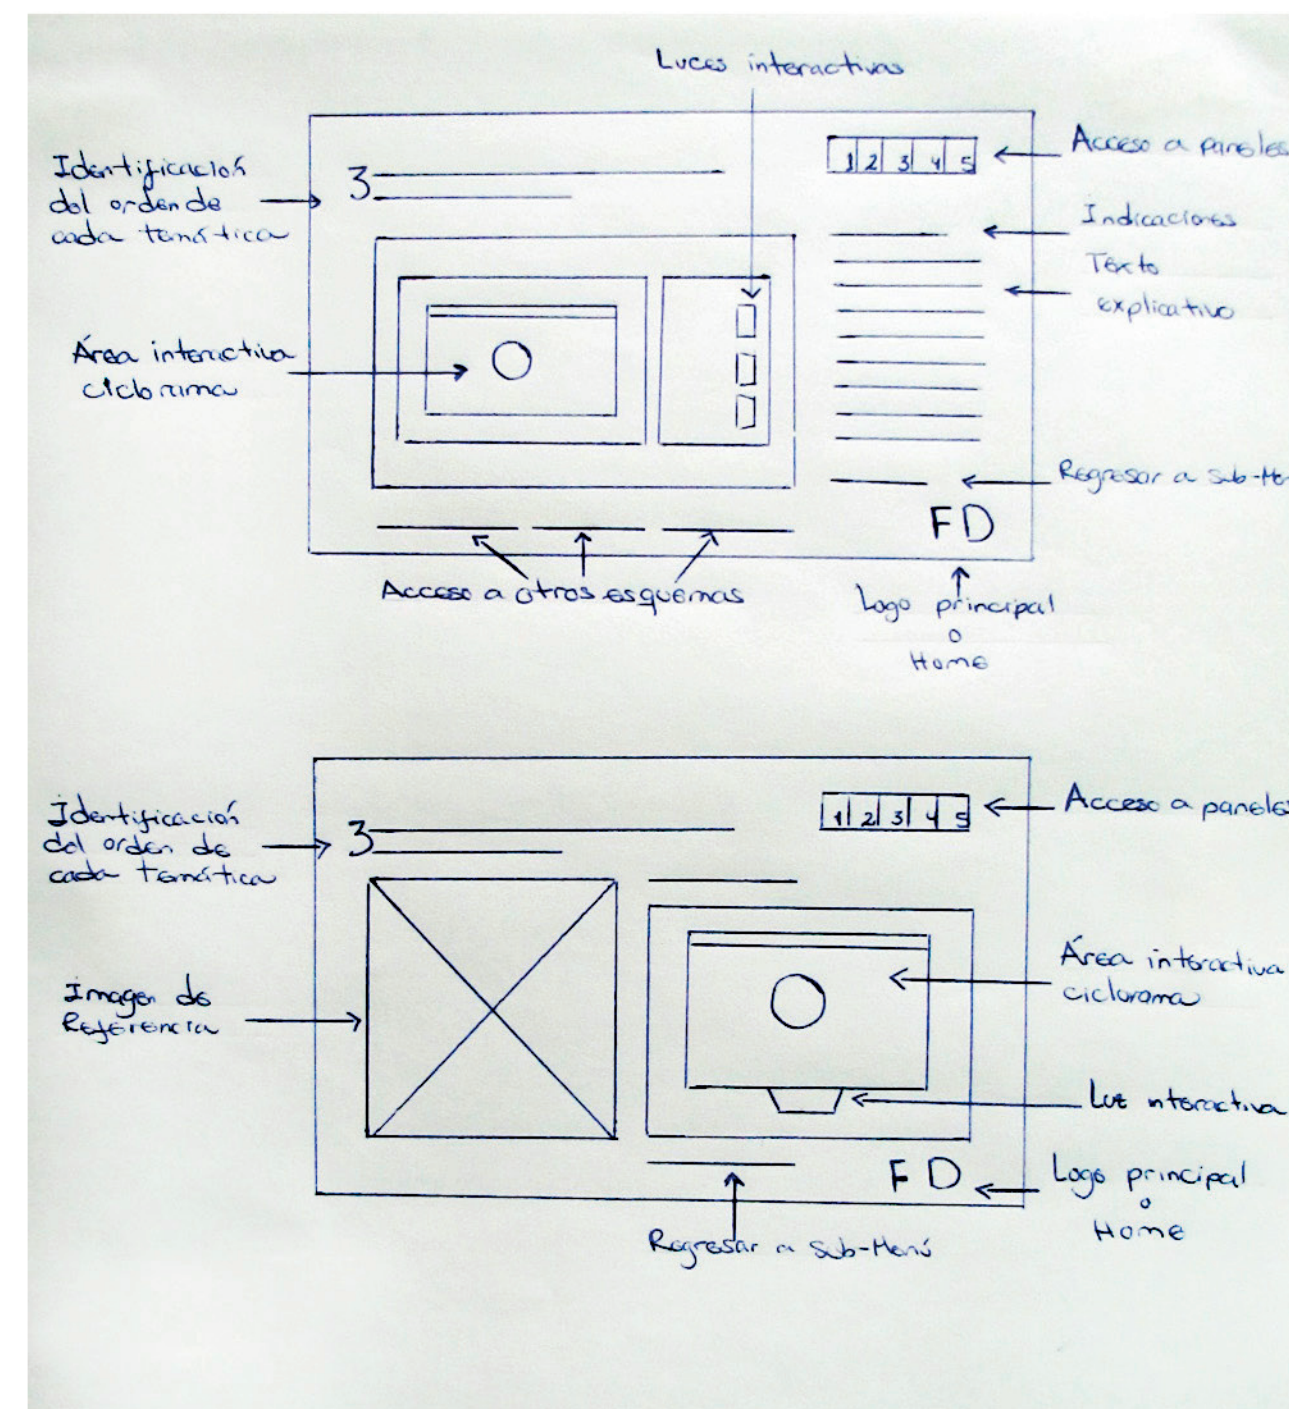 Luces interactivas
Identificación
del orden de
cada temática
3
1 2 3 4 5
Acceso a paneles
Indicaciones
Texto
explicativo
Área interactiva
ciclorama
Regresar a Sub-Me
FD
Acceso a otros esquemas
Logo principal
o
Home
Identificación
del orden de
cada temática
3
1 2 3 4 5
Acceso a paneles
Imagen de
Referencia
Área interactiva
ciclorama
Luz interactiva
FD
Logo principal
o
Home
Regresar a Sub-Menú